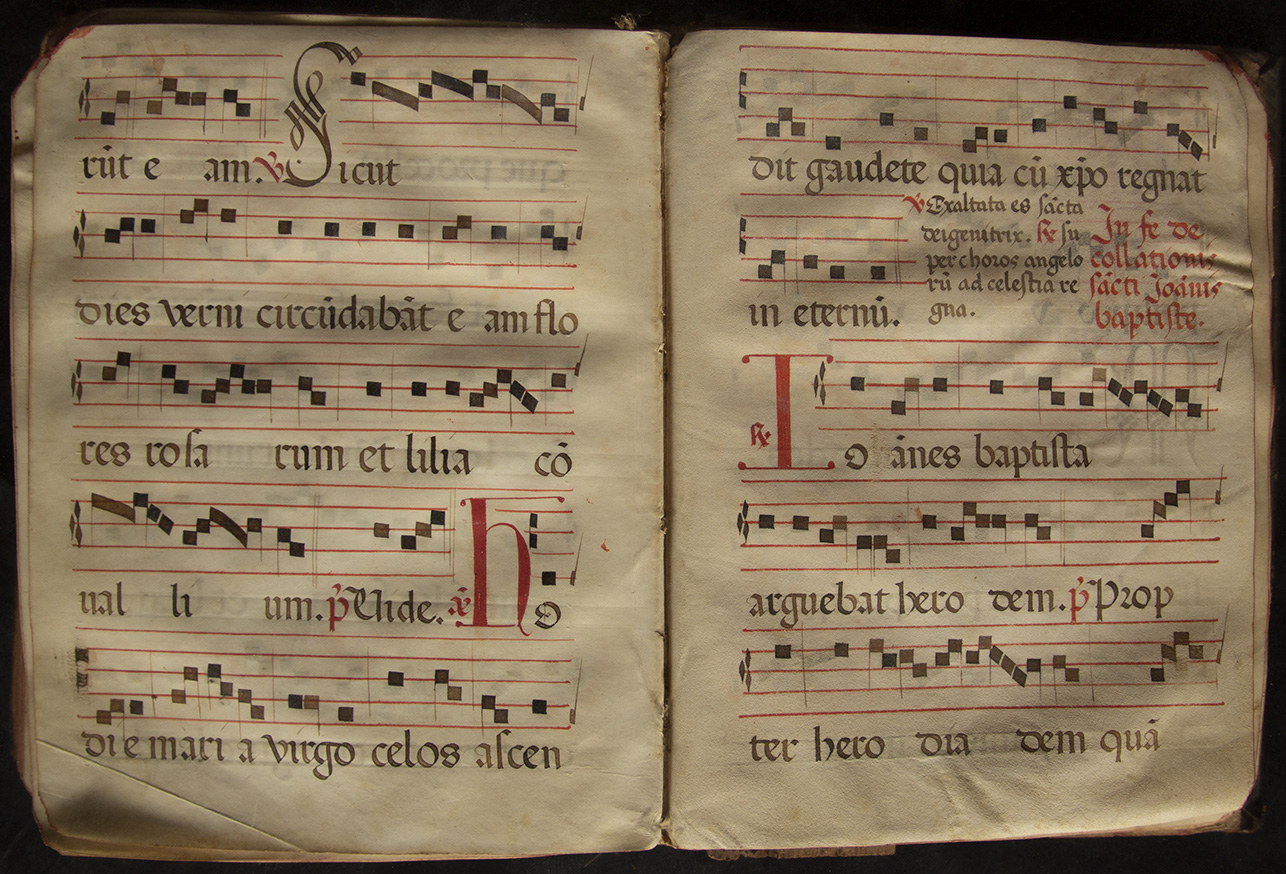 rūt e am. ℣ Sicut
dies verni circūdabāt e am flo
res rosa rum et lilia cō
ual li um. p̄ Uide. añ H o
di e mari a virgo celos ascen
dit gaudete quia cū xp̄o regnat
℣ Exaltata es sācta
deigenitrix. ℟ su
per choros angelo
rū ad celestia re
gna.
In fe de
collationis
sācti Joānis
baptiste.
in eternū.
℟ I o ānes baptista
arguebat hero dem. p̄ Prop
ter hero dia dem quā